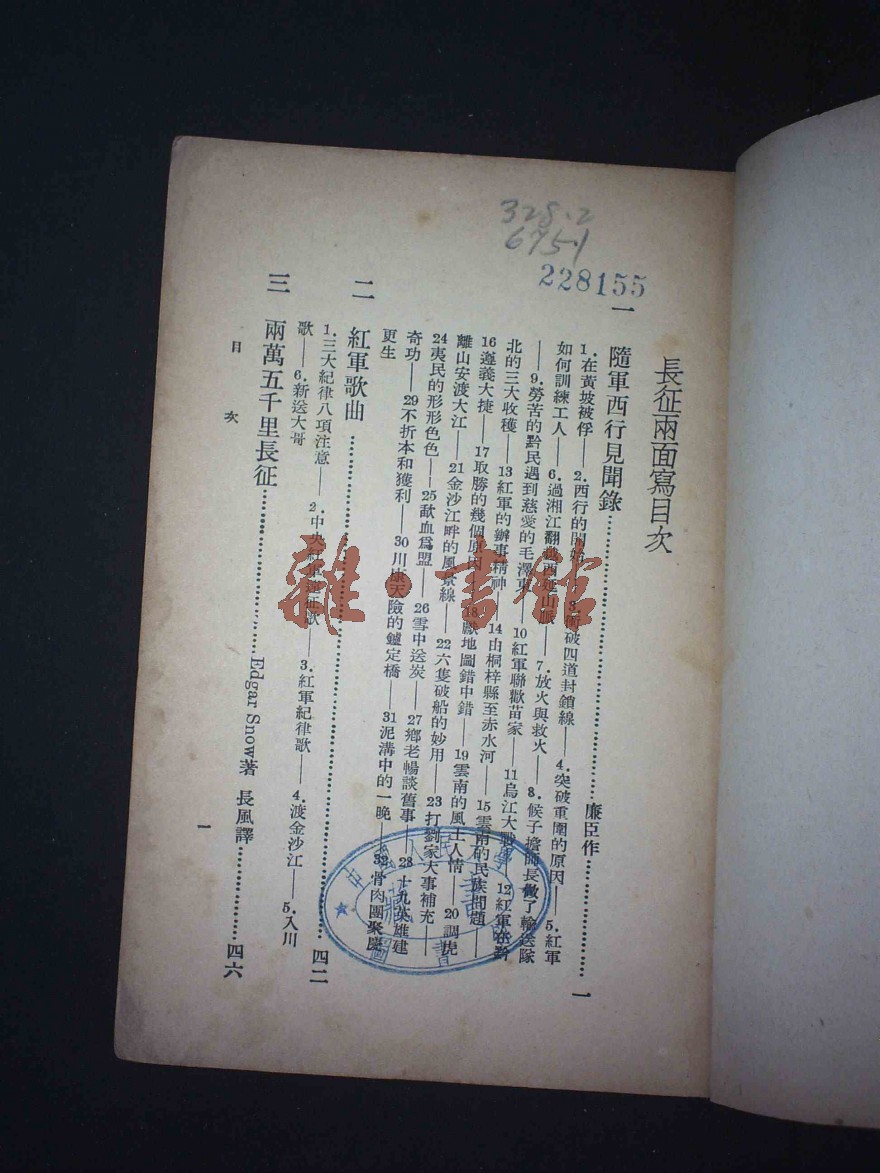 328.2
675.1
228155
長征兩面寫目次
一 隨軍西行見聞錄……………………廉臣作……………………一
1.在黃坡被俘——2.西行的開始——3.衝破四道封鎖線——4.突破重圍的原因——5.紅軍
如何訓練工人——6.過湘江翻越西延山脈——7.放火與救火——8.候子擔師長做了輸送隊
——9.勞苦的黔民遇到慈愛的毛澤東——10紅軍聯歡苗家——11烏江大戰——12紅軍在黔
北的三大收穫——13紅軍的辦事精神——14由桐梓縣至赤水河——15雲南的民族問題——
16遵義大捷——17取勝的幾個原因——18獻地圖錯中錯——19雲南的風土人情——20調虎
離山安渡大江——21金沙江畔的風景線——22六隻破船的妙用——23打劉家大事補充——
24夷民的形形色色——25歃血爲盟——26雪中送炭——27鄉老暢談舊事——28十九英雄建
奇功——29不折本和獲利——30川康天險的鑪定橋——31泥溝中的一晚——32骨肉團聚慶
更生
二 紅軍歌曲……………………四二
1.三大紀律八項注意——2.中央紅軍遠征歌——3.紅軍紀律歌——4.渡金沙江——5.入川
歌——6.新送大哥
三 兩萬五千里長征……………………Edgar Snow著 長風譯……………………四六
目 次
一
雜·書館